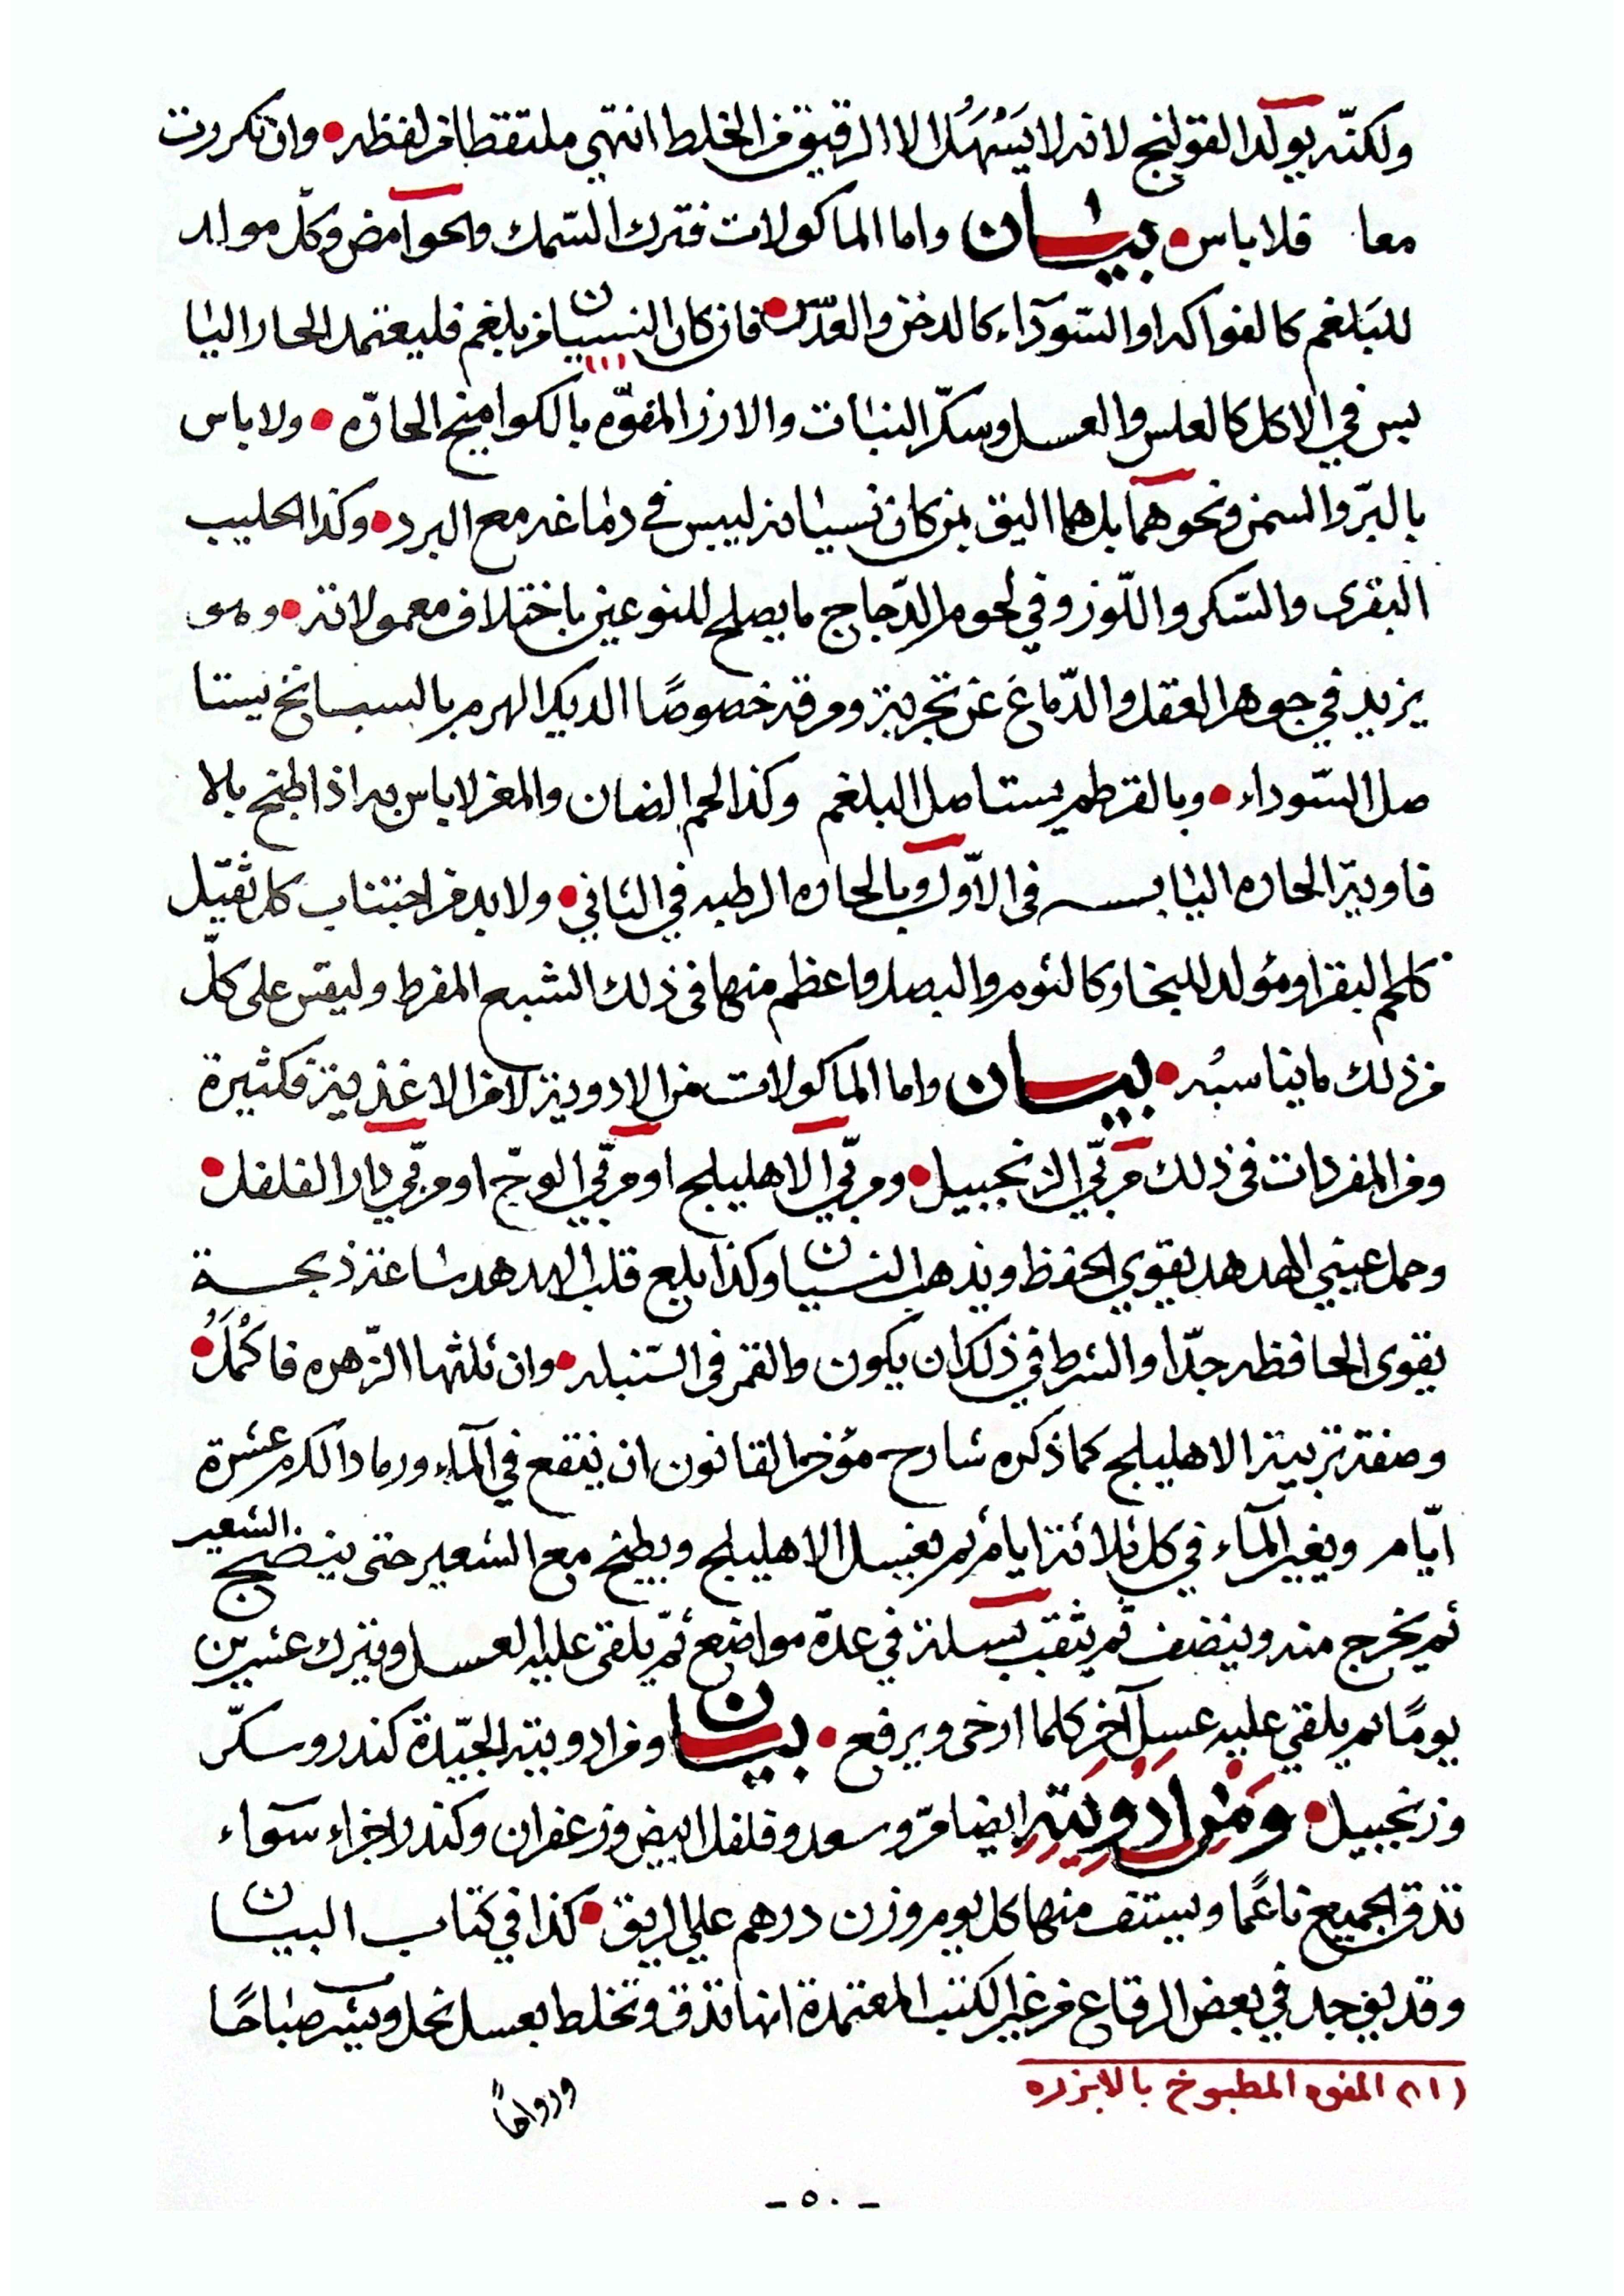 ولكنّه يولد القولنج لانه لا يَسْهَلُ الا الرقيق من الخلط انتهى ملتقطا من لفظه • وان تكررت
معا فلا باس • بيـان واما الماكولات فترك السّمك والحوامض وكل مولد
للبَلغم كالفواكه او السّوداء كالدخن والعدّس • فان كان النسيان من بلغم فليعتمد الحار اليا
بس في الاكل كالعلس والعسل وسكّر النبات والارز المفوّه (١) بالكوامخ الحارّه • ولا باس
بالبرّ والسمن ونحوهما بل هما اليق بمن كان نسيانه ليبس في دماغه مع البرد • وكذا الحليب
البقرى والسّكر واللّوز وفي لحوم الدّجاج ما يصلح للنوعين باختلاف معمولاته • وهى
يزيد في جوهر العقل والدّماغ عن تجربة ومرقه خصوصًا الديك الهرم بالبسبانخ يستا
صل السّوداء • وبالقرطم يستاصل البلغم وكذا لحم الضان والمغز لا باس به اذا طبخ بالا
فاويه الحاره اليابسـه فى الاوّل وبالحاره الرطبه في الثاني • ولا بد من اجتناب كل ثقيل
كلحم البقر او مؤلد للبخار كالثوم والبصل واعظم منها فى ذلك الشبع المفرط وليقس على كلّ
من ذلك ما يناسبُه • بيـان واما الماكولات من الادوية لا من الاغذية فكثيرة
ومن المفردات فى ذلك مربّي الزنجبيل • ومربّي الاهليلج او مربّي الوجّ او مربّي دار الفلفل •
وحمل عيني الهدهد يقوي الحفظ ويذهب النسيان وكذا بلع قلب الهدهد ساعة ذبحـه
يقوى الحافظه جدّا والشرط في ذلك ان يكون والقمر فى السّنبله • وان ثلثها الزّهره فاكْمَلُ •
وصفة تربية الاهليلج كما ذكره شارح مؤخر القانون ان ينقع في المآء ورماد الكرم عشرة
ايّام ويغير المآء في كل ثلاثة ايام ثم يغسل الاهليلج ويطبخ مع الشعير حتى ينضج الشعير
ثم يخرج منه وينضف ثم يثقب بسلة في عدة مواضع ثمّ يلقى عليه العسل ويترك عشرين
يومًا ثم يلقي عليه عسل آخر كلما ارخى ويرفع • بيـان ومن ادويته الجيّدة كندر وسكّر
وزنجبيل • وَمن ادويَته ايضا مرّ وسعد وفلفل ابيض وزعفران وكندر اجزاء سوآء
تدق الجميع ناعمًا ويستف منها كل يوم وزن درهم على الريق • كذا في كتاب البيـان
وقد يوجد في بعض الرقاع من غير الكتب المعتمدة انها تدق وتخلط بعسل نحل ويشرب صباحًا
(١) المفوه المطبوخ بالابزره
ورواحًا
- ٥٠ -